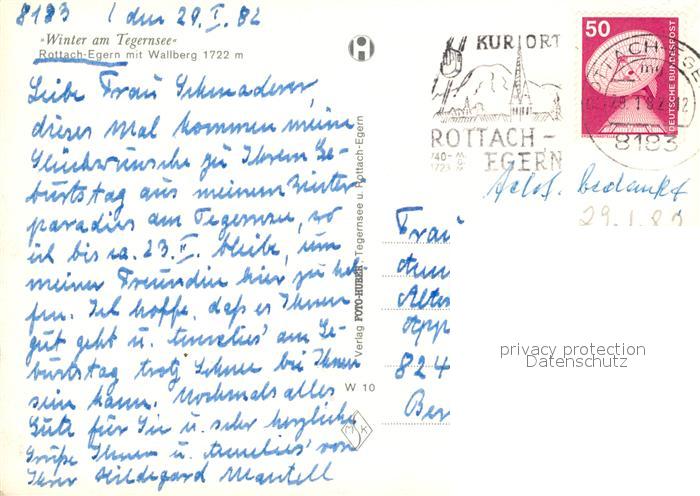 8183 / den 29. I. 82
»Winter am Tegernsee«
Rottach-Egern mit Wallberg 1722 m
Liebe Frau Schmaderer,
dieses Mal kommen meine
Glückwünsche zu Ihrem Ge-
burtstag aus meinem Winter-
paradies am Tegernsee, wo
ich bis ca. 23. II. bleibe, um
meiner Freundin hier zu hel-
fen. Ich hoffe, daß es Ihnen
gut geht u. am Ge-
burtstag trotz Schnee bei Ihnen
sein kann. Nochmals alles
Gute für Sie u. sehr herzliche
Grüße Ihnen u. von
Ihrer Hildegard Mantell
Verlag FOTO-HUBER, Tegernsee u. Rottach-Egern
W 10
KURORT
ROTTACH-
EGERN
740-
1723
50
DEUTSCHE BUNDESPOST
8183
bedankt
29.1.82
Frau
Ann
Altes
App
824
Ber
privacy protection
Datenschutz